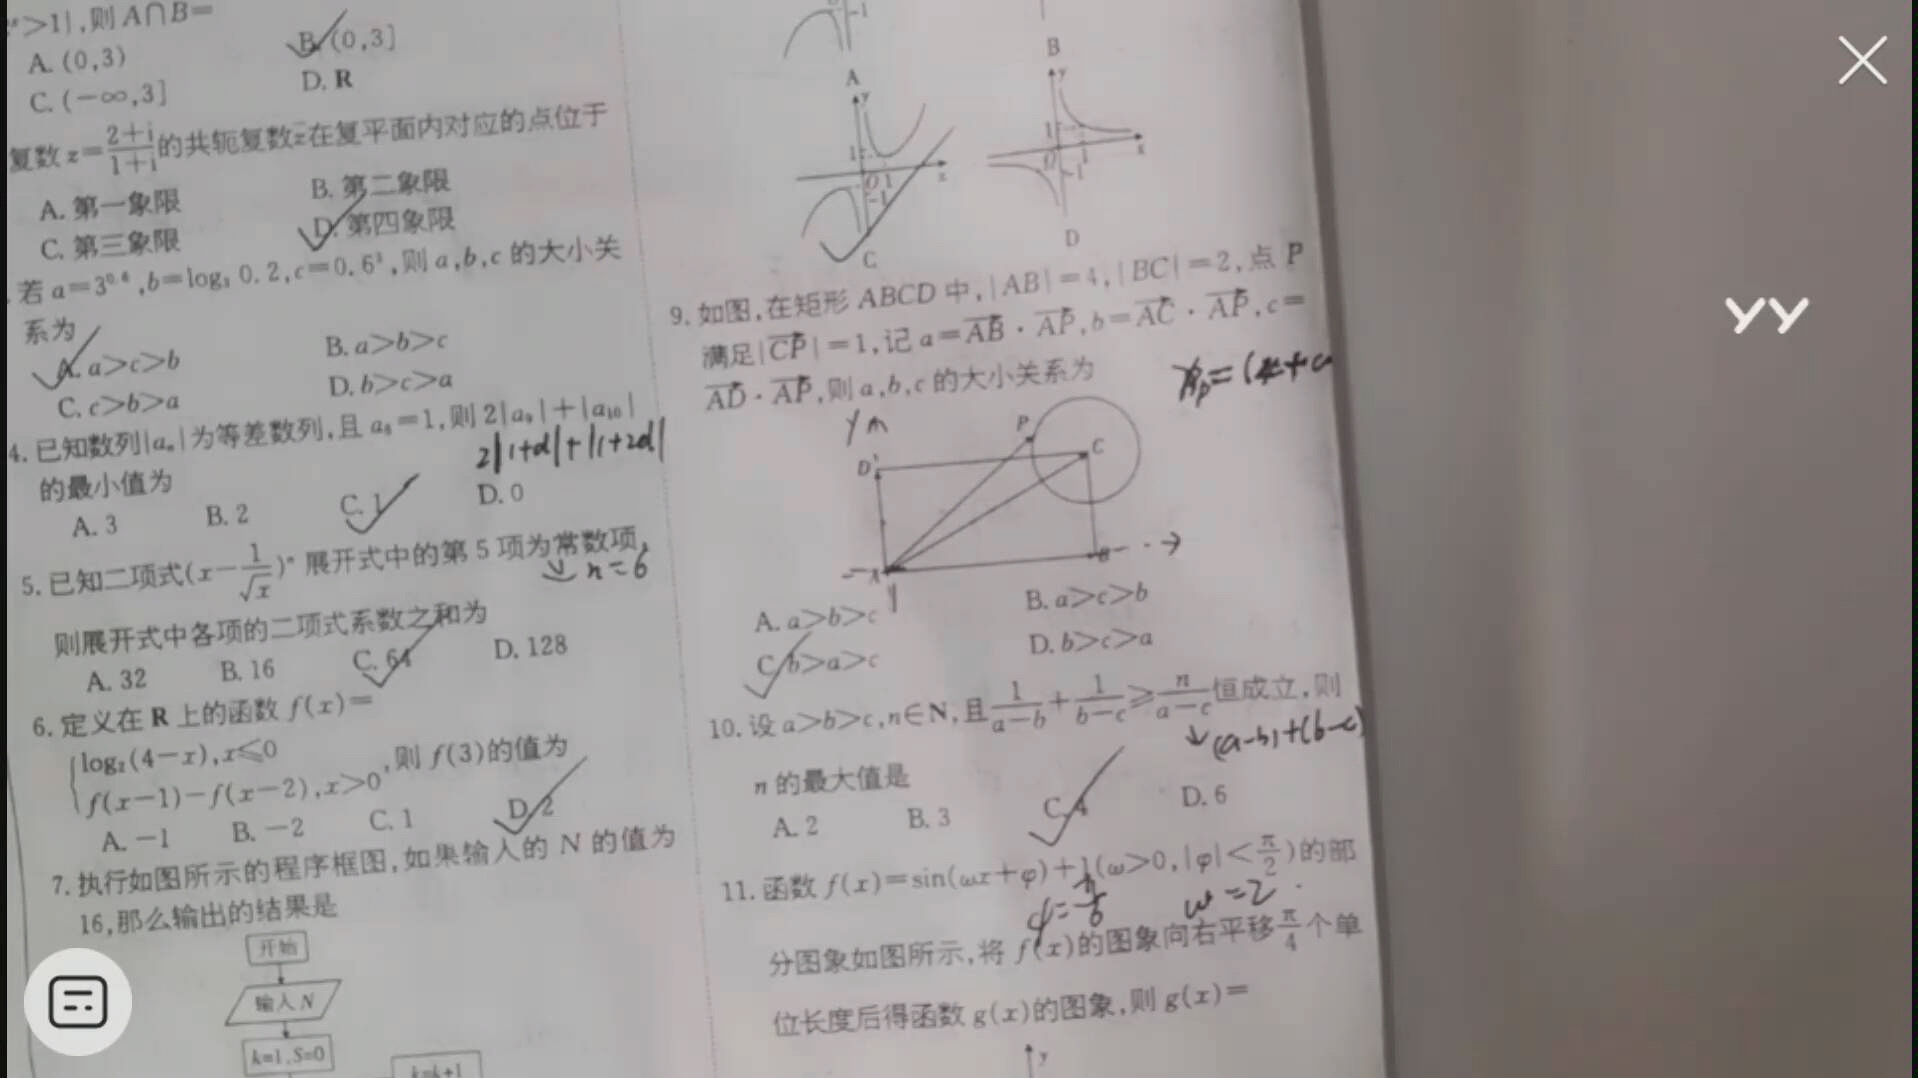 >1},则 A∩B=
A. (0,3)
B. (0,3]
C. (-∞,3]
D. R
复数 z=(2+i)/(1+i)的共轭复数z̄在复平面内对应的点位于
A. 第一象限
B. 第二象限
C. 第三象限
D. 第四象限
若 a=3^0.6,b=log₃ 0.2,c=0.6³,则 a,b,c 的大小关
系为
A. a>c>b
B. a>b>c
C. c>b>a
D. b>c>a
4. 已知数列{aₙ}为等差数列,且 a₈=1,则 2|a₉|+|a₁₀|
2|1+d|+|1+2d|
的最小值为
A. 3
B. 2
C. 1
D. 0
5. 已知二项式(x-1/√x)ⁿ 展开式中的第 5 项为常数项,
n=6
则展开式中各项的二项式系数之和为
A. 32
B. 16
C. 64
D. 128
6. 定义在 R 上的函数 f(x)=
{log₂(4-x),x≤0
f(x-1)-f(x-2),x>0,则 f(3)的值为
A. -1
B. -2
C. 1
D. 2
7. 执行如图所示的程序框图,如果输入的 N 的值为
16,那么输出的结果是
开始
输入 N
k=1,S=0
k=k+1
-1
A
B
y
1
O
1
x
-1
C
y
1
O
1
x
-1
D
9. 如图,在矩形 ABCD 中,|AB|=4,|BC|=2,点 P
满足|CP|=1,记 a=AB·AP,b=AC·AP,c=
AD·AP,则 a,b,c 的大小关系为
y
P
D
C
A
B
A. a>b>c
B. a>c>b
C. b>a>c
D. b>c>a
10. 设 a>b>c,n∈N,且1/(a-b)+1/(b-c)≥n/(a-c)恒成立,则
(a-b)+(b-c)
n 的最大值是
A. 2
B. 3
C. 4
D. 6
11. 函数 f(x)=sin(ωx+φ)+1(ω>0,|φ|<π/2)的部
φ=π/6
ω=2
分图象如图所示,将 f(x)的图象向右平移π/4个单
位长度后得函数 g(x)的图象,则 g(x)=
y
YY